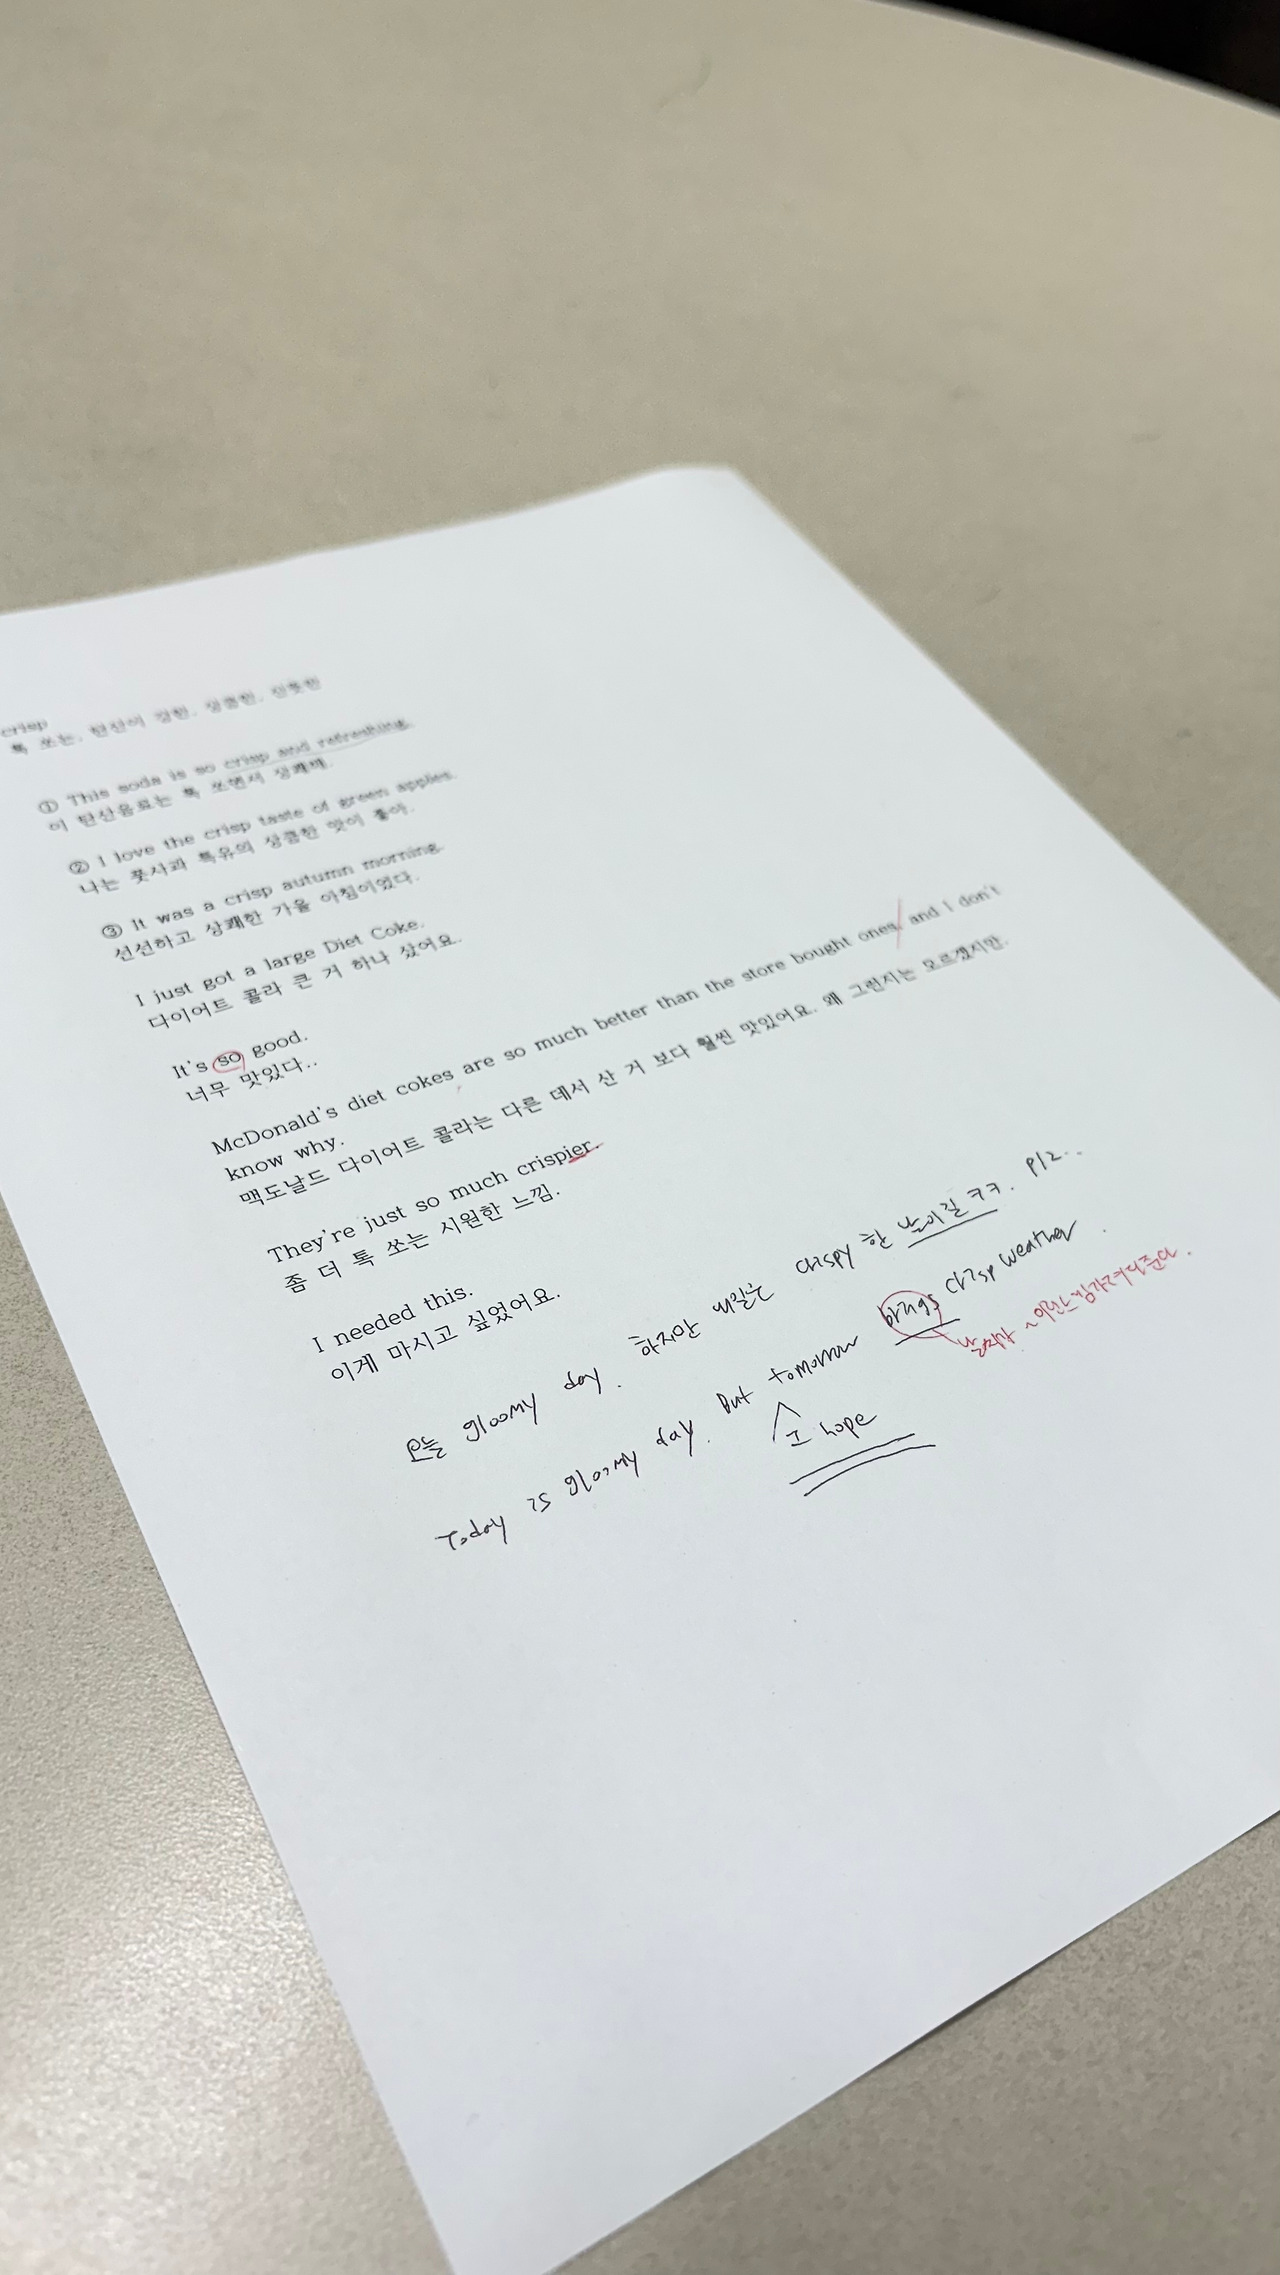 crisp
톡 쏘는, 탄산이 강한, 상큼한, 산뜻한
① This soda is so crisp and refreshing.
이 탄산음료는 톡 쏘면서 상쾌해.
② I love the crisp taste of green apples.
나는 풋사과 특유의 상큼한 맛이 좋아.
③ It was a crisp autumn morning.
선선하고 상쾌한 가을 아침이었다.
I just got a large Diet Coke.
다이어트 콜라 큰 거 하나 샀어요.
It's so good.
너무 맛있다..
McDonald's diet cokes are so much better than the store bought ones, and I don't
know why.
맥도날드 다이어트 콜라는 다른 데서 산 거 보다 훨씬 맛있어요. 왜 그런지는 모르겠지만.
They're just so much crispier.
좀 더 톡 쏘는 시원한 느낌.
I needed this.
이게 마시고 싶었어요.
오늘 gloomy day. 하지만 내일은 crispy 한 날이길 ㅋㅋ. plz..
Today is gloomy day. But tomorrow brings crisp weather.
I hope